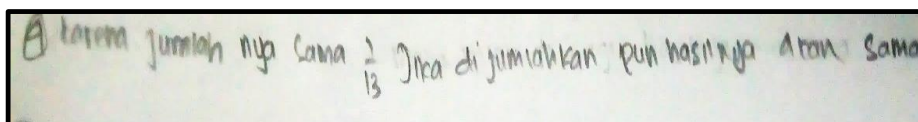 4 karena jumlah nya sama 1/13 Jika di jumlahkan pun hasilnya akan sama